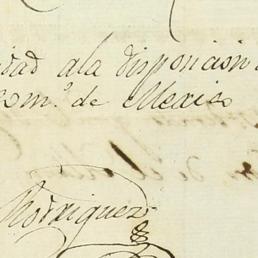 dad ala disposicion
com.º de Mexico
Rodriguez